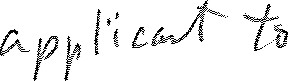 applicant to